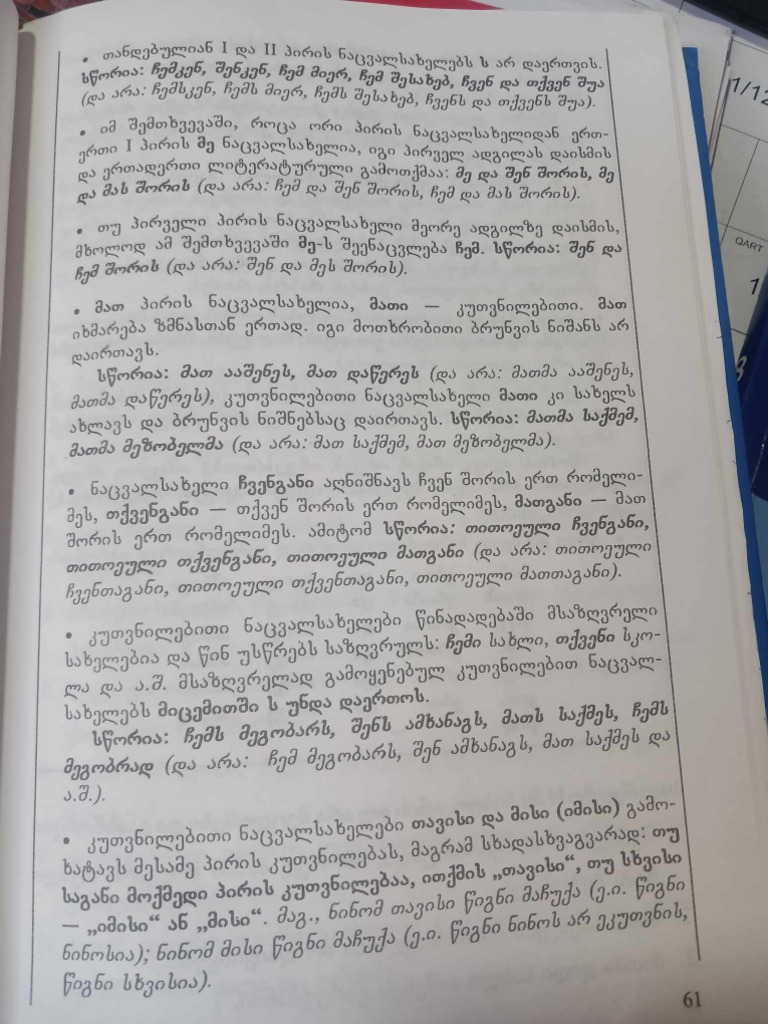 • თანდებულიან I და II პირის ნაცვალსახელებს ს არ დაერთვის.
სწორია: ჩემკენ, შენკენ, ჩემ მიერ, ჩემ შესახებ, ჩვენ და თქვენ შუა
(და არა: ჩემსკენ, ჩემს მიერ, ჩემს შესახებ, ჩვენს და თქვენს შუა).
• იმ შემთხვევაში, როცა ორი პირის ნაცვალსახელიდან ერთ-
ერთი I პირის მე ნაცვალსახელია, იგი პირველ ადგილას დაისმის
და ერთადერთი ლიტერატურული გამოთქმაა: მე და შენ შორის, მე
და მას შორის (და არა: ჩემ და შენ შორის, ჩემ და მას შორის).
• თუ პირველი პირის ნაცვალსახელი მეორე ადგილზე დაისმის,
მხოლოდ ამ შემთხვევაში მე-ს შეენაცვლება ჩემ. სწორია: შენ და
ჩემ შორის (და არა: შენ და მეს შორის).
• მათ პირის ნაცვალსახელია, მათი — კუთვნილებითი. მათ
იხმარება ზმნასთან ერთად. იგი მოთხრობითი ბრუნვის ნიშანს არ
დაირთავს.
სწორია: მათ ააშენეს, მათ დაწერეს (და არა: მათმა ააშენეს,
მათმა დაწერეს), კუთვნილებითი ნაცვალსახელი მათი კი სახელს
ახლავს და ბრუნვის ნიშნებსაც დაირთავს. სწორია: მათმა საქმემ,
მათმა მეზობელმა (და არა: მათ საქმემ, მათ მეზობელმა).
• ნაცვალსახელი ჩვენგანი აღნიშნავს ჩვენ შორის ერთ რომელი-
მეს, თქვენგანი — თქვენ შორის ერთ რომელიმეს, მათგანი — მათ
შორის ერთ რომელიმეს. ამიტომ სწორია: თითოეული ჩვენგანი,
თითოეული თქვენგანი, თითოეული მათგანი (და არა: თითოეული
ჩვენთაგანი, თითოეული თქვენთაგანი, თითოეული მათთაგანი).
• კუთვნილებითი ნაცვალსახელები წინადადებაში მსაზღვრელი
სახელებია და წინ უსწრებს საზღვრულს: ჩემი სახლი, თქვენი სკო-
ლა და ა.შ. მსაზღვრელად გამოყენებულ კუთვნილებით ნაცვალ-
სახელებს მიცემითში ს უნდა დაერთოს.
სწორია: ჩემს მეგობარს, შენს ამხანაგს, მათს საქმეს, ჩემს
მეგობრად (და არა: ჩემ მეგობარს, შენ ამხანაგს, მათ საქმეს და
ა.შ.).
• კუთვნილებითი ნაცვალსახელები თავისი და მისი (იმისი) გამო-
ხატავს მესამე პირის კუთვნილებას, მაგრამ სხადასხვაგვარად: თუ
საგანი მოქმედი პირის კუთვნილებაა, ითქმის „თავისი“, თუ სხვისი
— „იმისი“ ან „მისი“. მაგ., ნინომ თავისი წიგნი მაჩუქა (ე.ი. წიგნი
ნინოსია); ნინომ მისი წიგნი მაჩუქა (ე.ი. წიგნი ნინოს არ ეკუთვნის,
წიგნი სხვისია).
61
1/12
QART
1
3